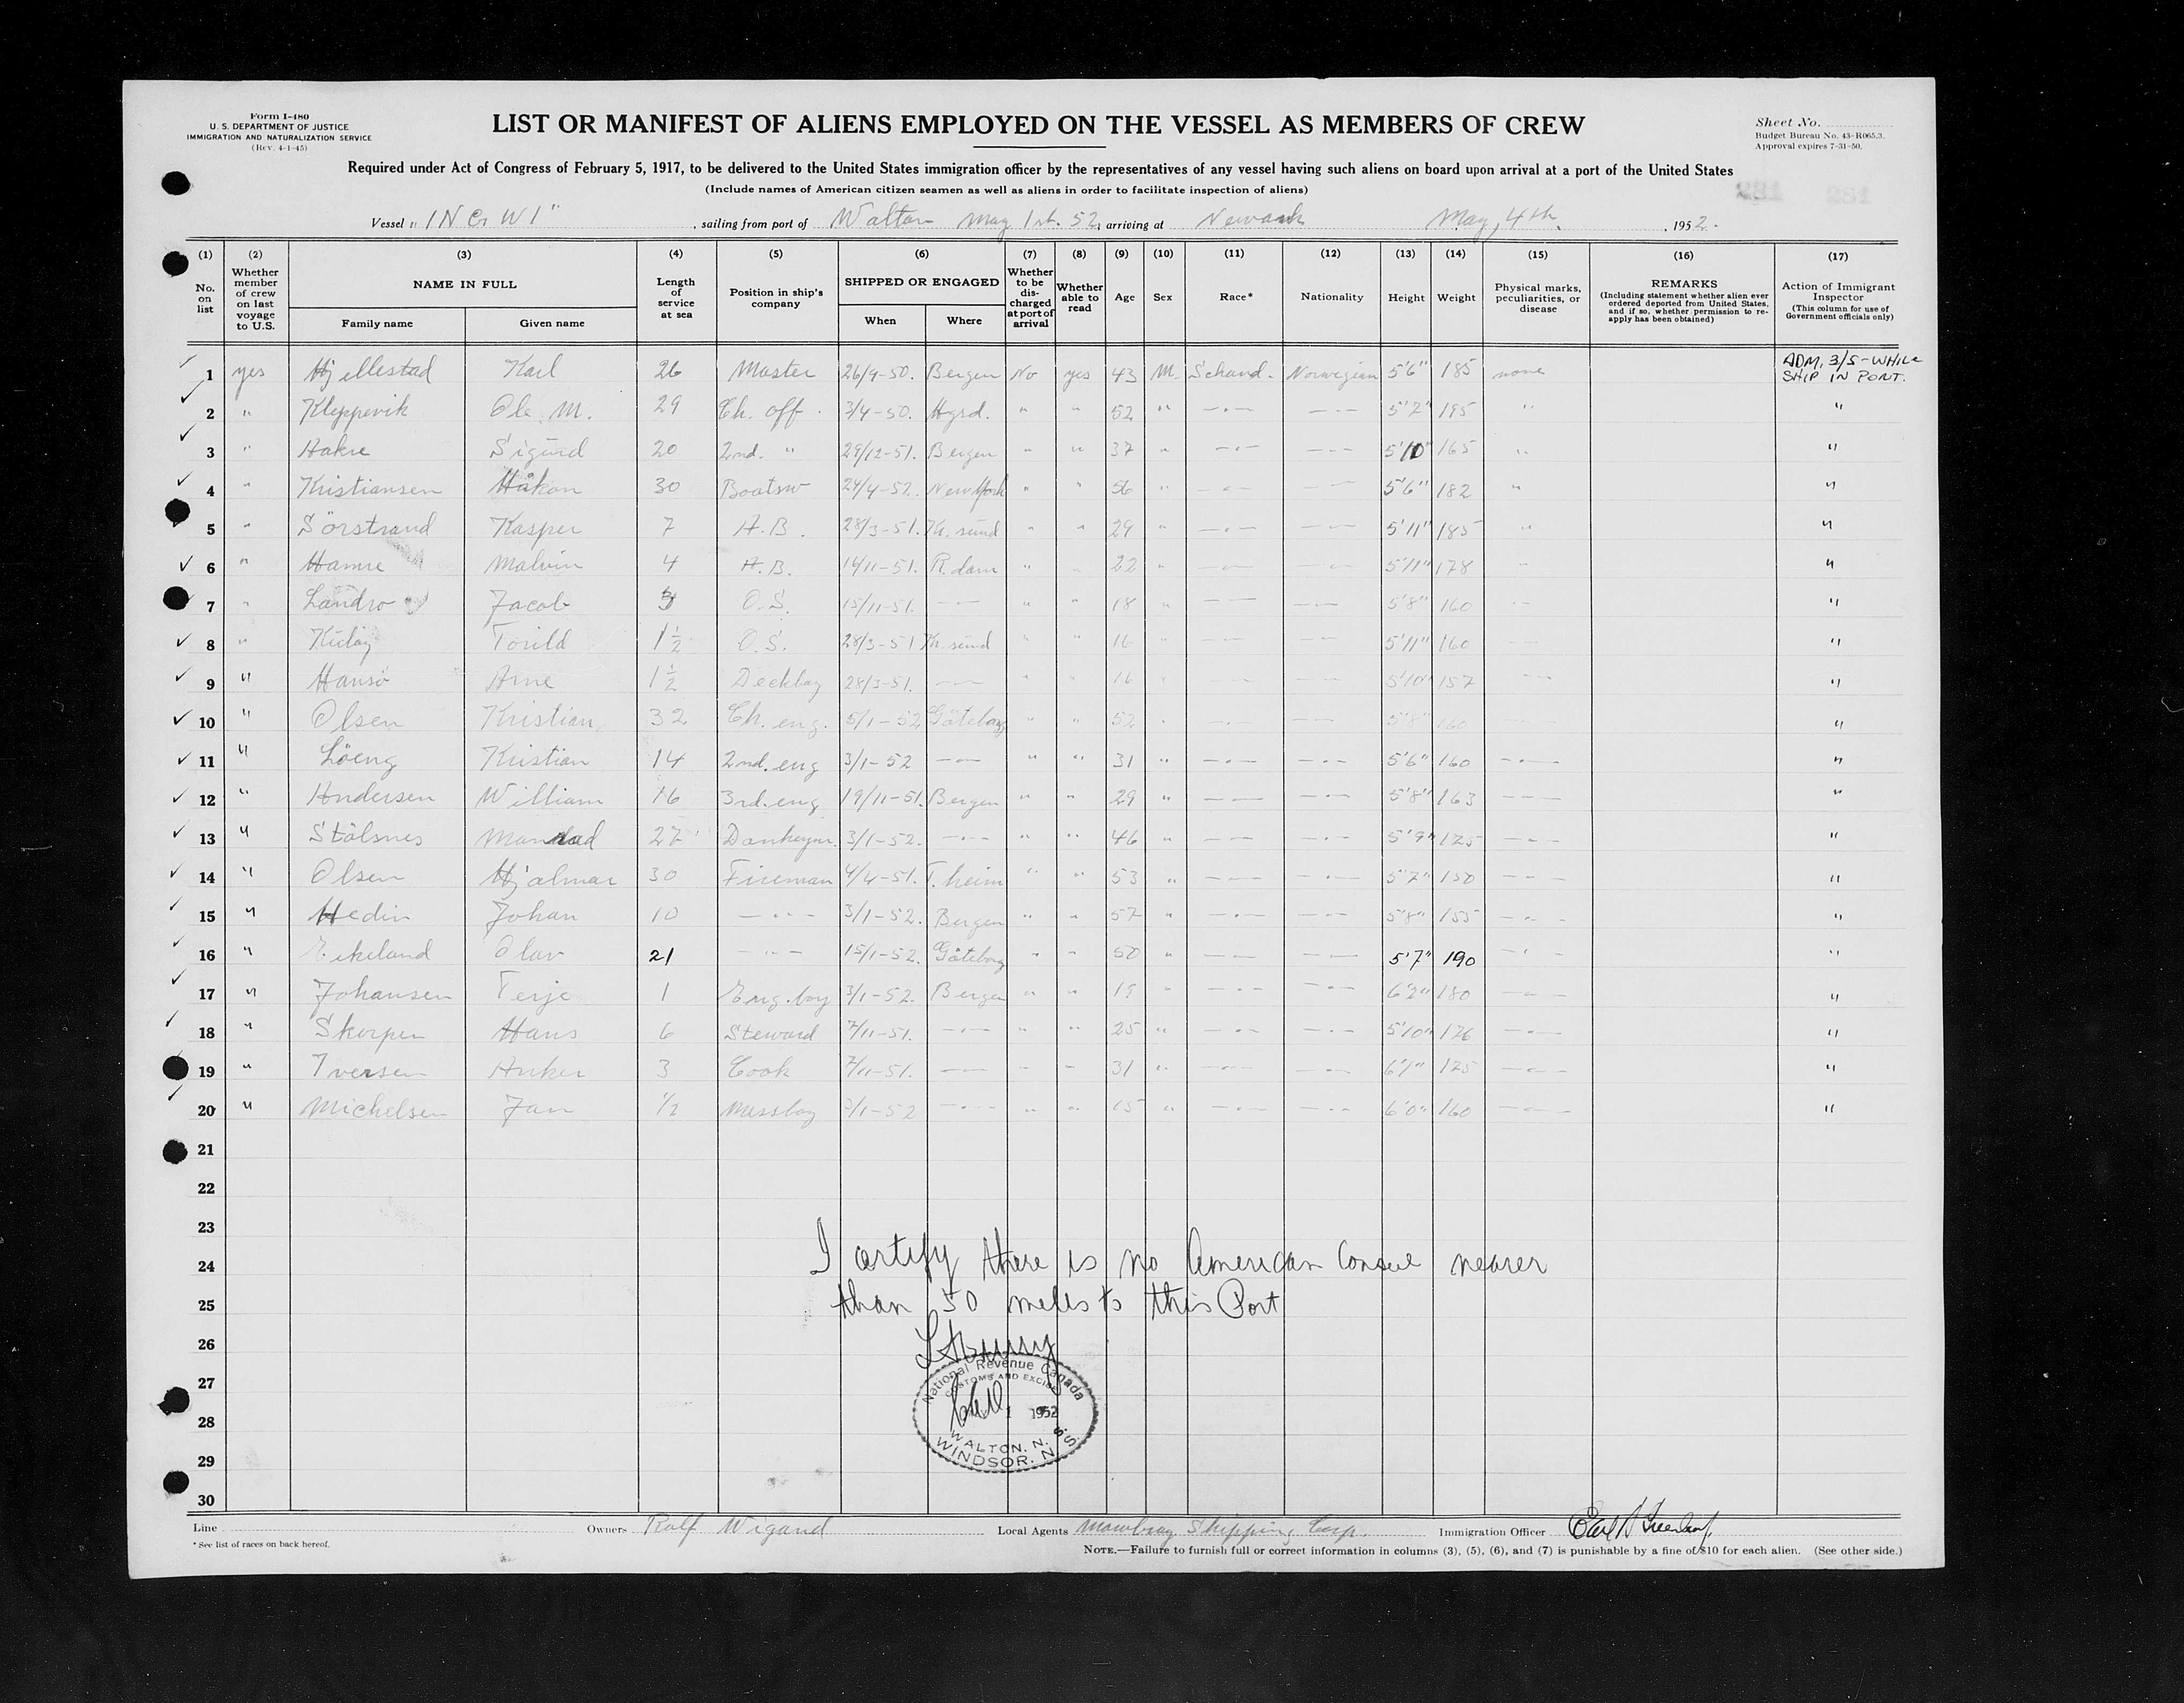 Form I-480
U. S. DEPARTMENT OF JUSTICE
IMMIGRATION AND NATURALIZATION SERVICE
(Rev. 4-1-45)
LIST OR MANIFEST OF ALIENS EMPLOYED ON THE VESSEL AS MEMBERS OF CREW
Sheet No.
Budget Bureau No. 43-R065.3.
Approval expires 7-31-50.
Required under Act of Congress of February 5, 1917, to be delivered to the United States immigration officer by the representatives of any vessel having such aliens on board upon arrival at a port of the United States
(Include names of American citizen seamen as well as aliens in order to facilitate inspection of aliens)
Vessel , sailing from port of Walton May 1st. 52, arriving at Newark May, 4th. , 1952.
(1) (2) (3) (4) (5) (6) (7) (8) (9) (10) (11) (12) (13) (14) (15) (16) (17)
No. on list
Whether member of crew on last voyage to U.S.
NAME IN FULL
Family name Given name
Length of service at sea
Position in ship's company
SHIPPED OR ENGAGED
When Where
Whether to be discharged at port of arrival
Whether able to read
Age Sex Race* Nationality Height Weight
Physical marks, peculiarities, or disease
REMARKS
(Including statement whether alien ever ordered deported from United States, and if so, whether permission to reapply has been obtained)
Action of Immigrant Inspector
(This column for use of Government officials only)
1 yes Hjellestad Karl 26 Master 26/9-50. Bergen No yes 43 M. Schand. Norwegian 5'6" 185 none ADM, 3/5-WHILE SHIP IN PORT.
2 " Kleppevik Ole M. 29 Ch. off. 3/4-50. " " 52 " —·— —·— 5'7" 195 " "
3 " Hakre Sigurd 20 2nd. " 29/12-51. Bergen " " 37 " —·— —·— 5'10" 165 " "
4 " Kristiansen Håkon 30 Boatsw 24/4-52. New York " " 56 " —·— —·— 5'6" 182 " "
5 " Sörstrand Kasper 7 A.B. 28/3-51. Kr. sund " " 29 " —·— —·— 5'11" 185 " "
6 " Hamre Malvin 4 A.B. 14/11-51. R.dam " " 22 " —·— —·— 5'11" 178 " "
7 " Landro Jacob 3 O.S. 15/11-51. —·— " " 18 " —·— —·— 5'8" 160 " "
8 " Torild 1½ O.S. 28/3-51 Kr. sund " " 16 " —·— —·— 5'11" 160 "
9 " Hansö Arne 1½ Deckboy 28/3-51. —·— " " 16 " —·— —·— 5'10" 157 "
10 " Olsen Kristian 32 Ch. eng. 5/1-52 Göteborg " " 52 " —·— —·— 5'8" 160 "
11 " Löeng Kristian 14 2nd. eng 3/1-52 —·— " " 31 " —·— —·— 5'6" 160 —·— "
12 " Andersen William 16 3rd. eng 19/11-51. Bergen " " 29 " —·— —·— 5'8" 163 —·— "
13 " Stölsnes 27 Donkeym. 3/1-52. —·— " " 46 " —·— —·— 5'9" 125 —·— "
14 " Olsen Hjalmar 30 Fireman 4/4-51. T.heim " " 53 " —·— —·— 5'7" 150 —·— "
15 " Hedin Johan 10 —·— 3/1-52. Bergen " " 57 " —·— —·— 5'8" 155 —·— "
16 " Eikeland Olav 21 —·— 15/1-52. Göteborg " " 50 " —·— —·— 5'7" 190 —·— "
17 " Johansen Terje 1 Eng. boy 3/1-52. Bergen " " 19 " —·— —·— 6'2" 180 —·— "
18 " Skorpen Hans 6 Steward 7/11-51. —·— " " 25 " —·— —·— 5'10" 176 —·— "
19 " Iversen Anker 3 Cook 7/11-51. —·— " " 31 " —·— —·— 6'1" 125 —·— "
20 " Michelsen Jan ½ Messboy 3/1-52 —·— " " 15 " —·— —·— 6'0" 160 —·— "
21
22
23
24
25
26
27
28
29
30
I certify there is no American Consul nearer
than 50 miles to this Port
National Revenue Canada
CUSTOMS AND EXCISE
1 1952
WALTON, N. S.
WINDSOR. N. S.
Line Owners Rolf Wigand Local Agents Mowbray Shipping Corp. Immigration Officer
* See list of races on back hereof.
NOTE.—Failure to furnish full or correct information in columns (3), (5), (6), and (7) is punishable by a fine of $10 for each alien. (See other side.)